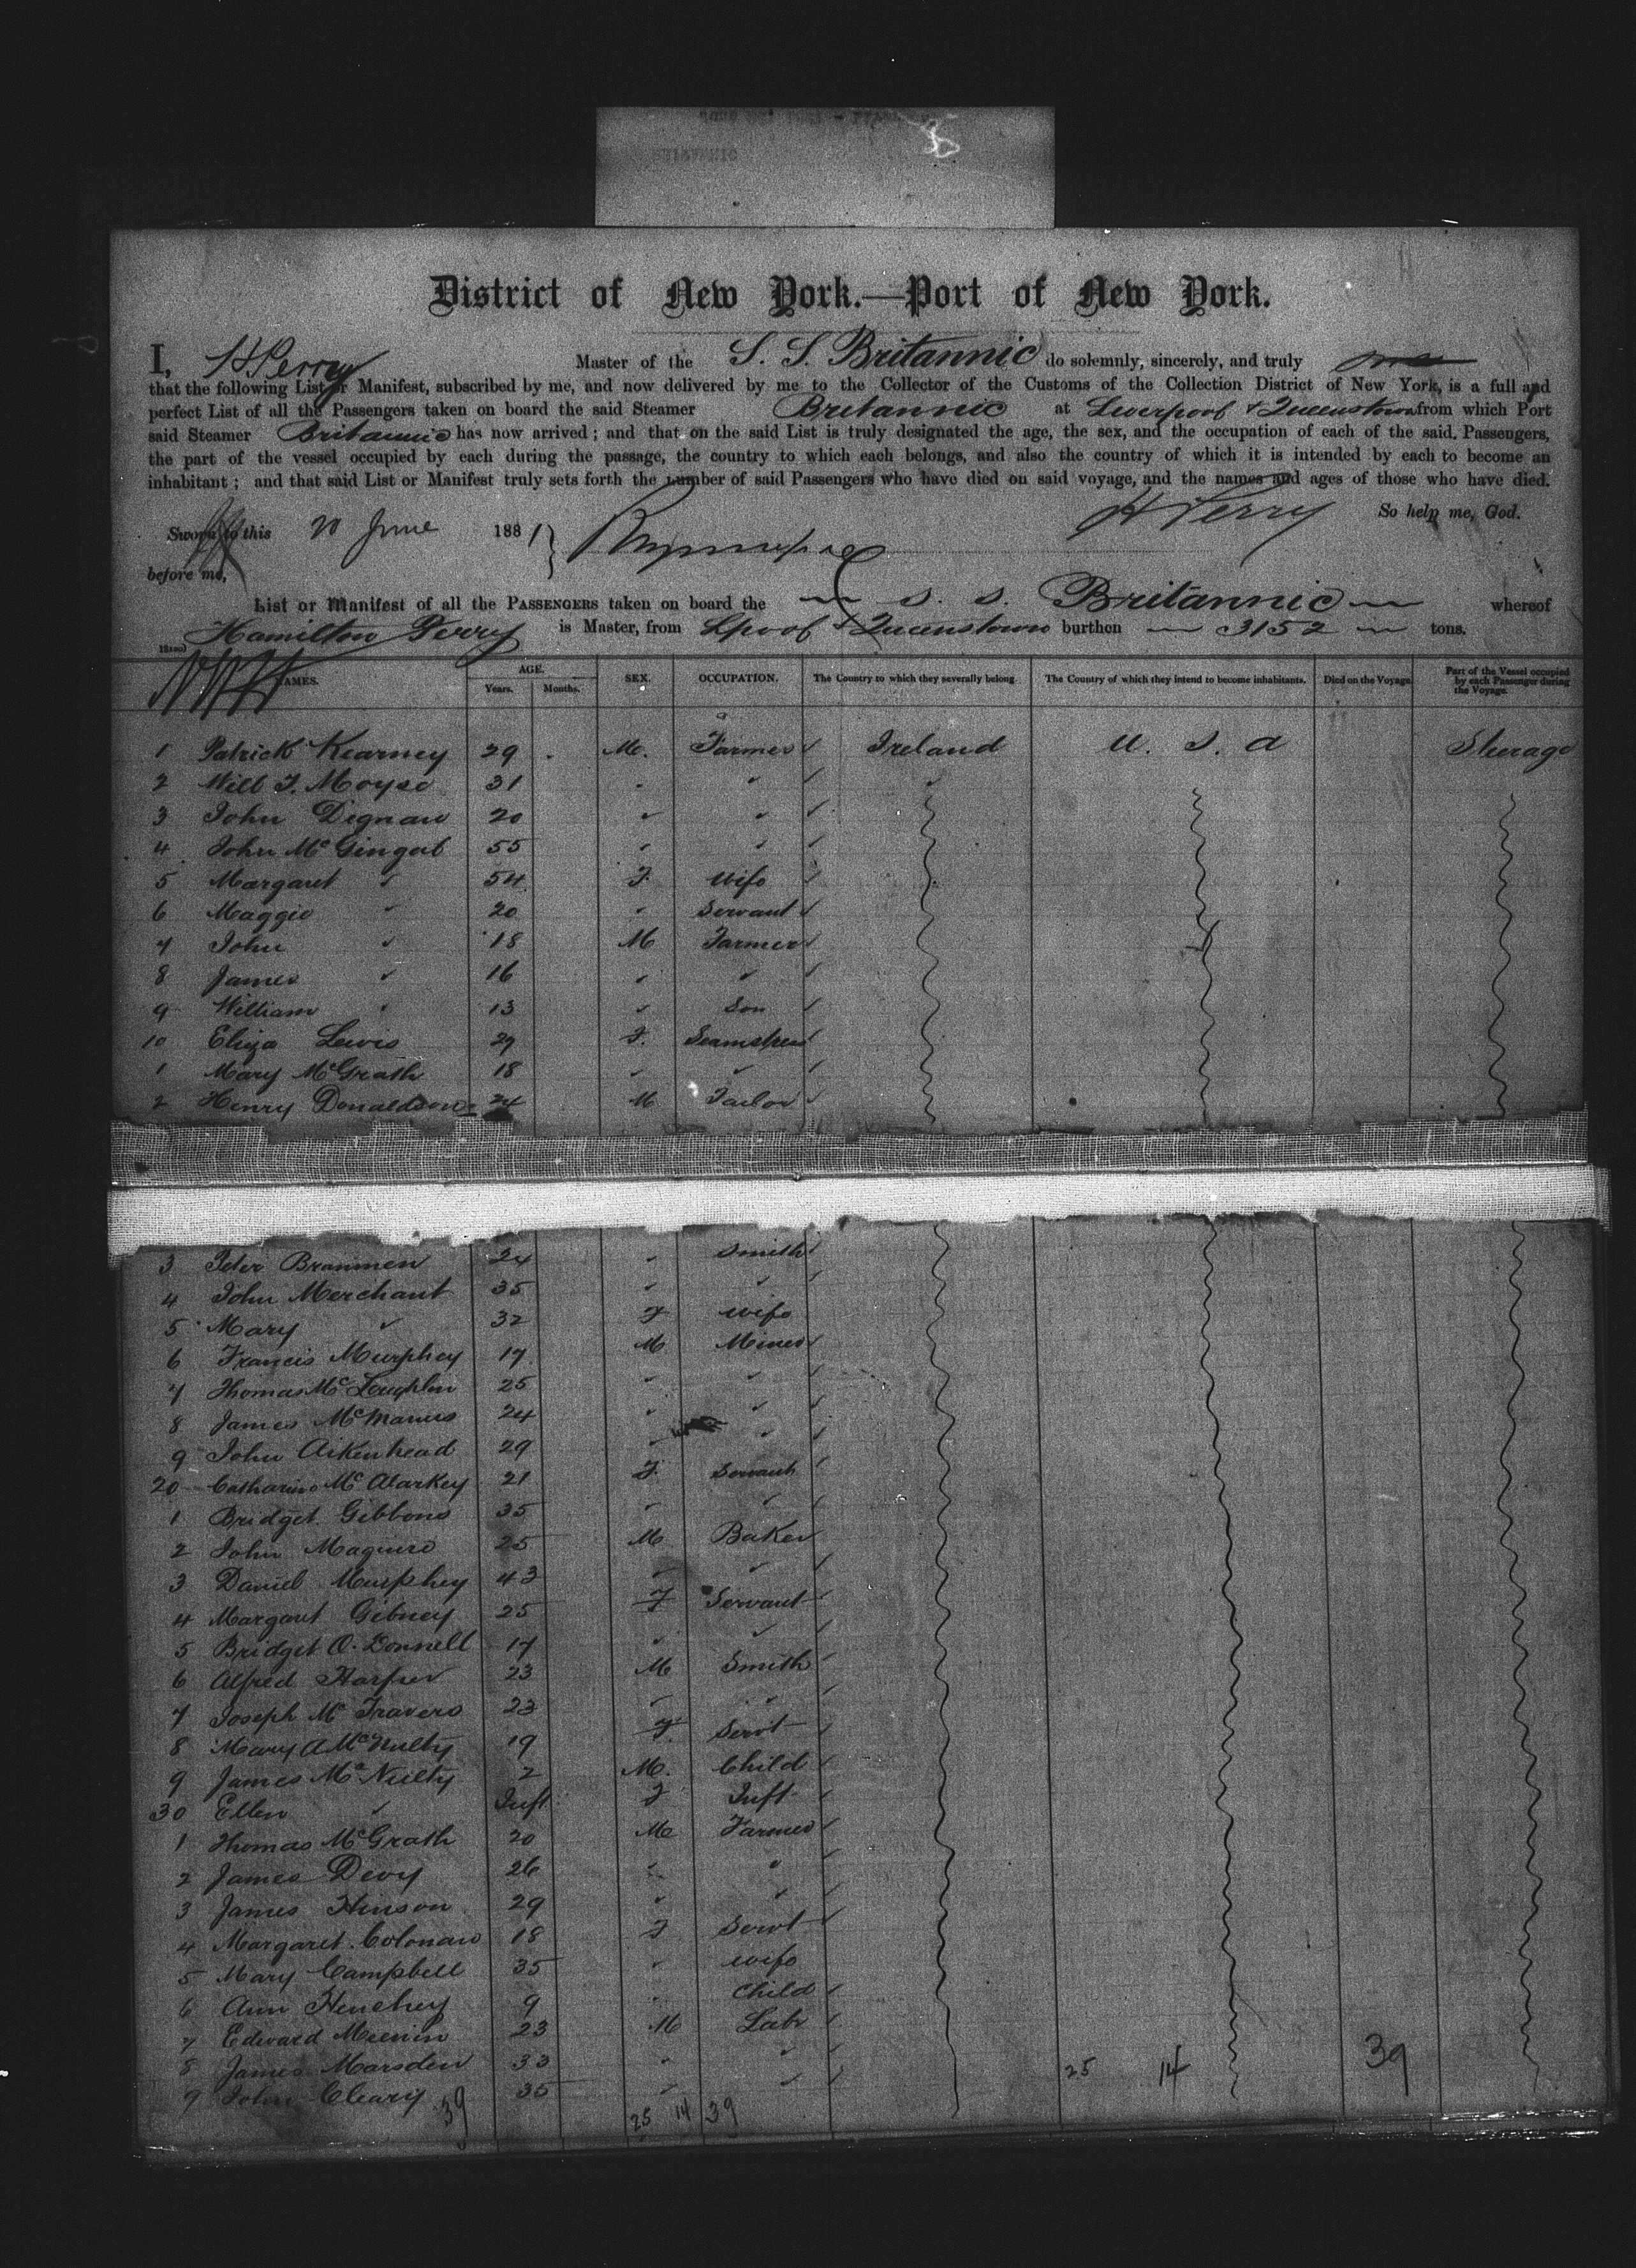 District of New York.—Port of New York.
I, H Perry Master of the S. S. Britannic do solemnly, sincerely, and truly
that the following List or Manifest, subscribed by me, and now delivered by me to the Collector of the Customs of the Collection District of New York, is a full and
perfect List of all the Passengers taken on board the said Steamer Britannic at Liverpool & Queenstown from which Port
said Steamer Britannic has now arrived; and that on the said List is truly designated the age, the sex, and the occupation of each of the said Passengers,
the part of the vessel occupied by each during the passage, the country to which each belongs, and also the country of which it is intended by each to become an
inhabitant; and that said List or Manifest truly sets forth the number of said Passengers who have died on said voyage, and the names and ages of those who have died.
So help me, God.
Sworn to this 20 June 1881 H Perry
before me,
List or Manifest of all the PASSENGERS taken on board the S. S. Britannic whereof
Hamilton Perry is Master, from Lpool & Queenstown burthen 3152 tons.
NAMES. AGE. Years. Months. SEX. OCCUPATION. The Country to which they severally belong. The Country of which they intend to become inhabitants. Died on the Voyage. Part of the Vessel occupied by each Passenger during the Voyage.
1 Patrick Kearney 29 M. Farmer Ireland U. S. A Steerage
2 Will T. Moyse 31 " " "
3 John Dignan 20 " "
4 John McGingal 55 " "
5 Margaret " 54 F. Wife
6 Maggie " 20 " Servant
7 John " 18 M Farmer
8 James " 16 " "
9 William " 13 " Son
10 Eliza Lewis 29 F. Seamstress
1 Mary McGrath 18 " "
2 Henry Donaldson 24 M Tailor
3 Peter Branmen 24 " Smith
4 John Merchant 35 " "
5 Mary " 32 F Wife
6 Francis Murphey 17 M Miner
7 Thomas McLoughlin 25 " "
8 James McManus 24 " "
9 John Aikenhead 29 " "
20 Catharine McAlarkey 21 F. Servant
1 Bridget Gibbons 35 " "
2 John Maguire 25 M Baker
3 Daniel Murphey 43 " "
4 Margaret Gibney 25 F Servant
5 Bridget O. Donnell 17 " "
6 Alfred Harper 23 M Smith
7 Joseph McTravers 23 " "
8 Mary A McNulty 19 F. Servt
9 James McNulty 2 M. Child
30 Ellen " Inft F Inft
1 Thomas McGrath 20 M Farmer
2 James Devy 26 " "
3 James Hinson 29 " "
4 Margaret Colonan 18 F Servt
5 Mary Campbell 35 " Wife
6 Ann Henehey 9 " Child
7 Edward 23 M Labr
8 James Marsden 33 " " 25 14 39
9 John Cleary 35 " "
39 25 14 39